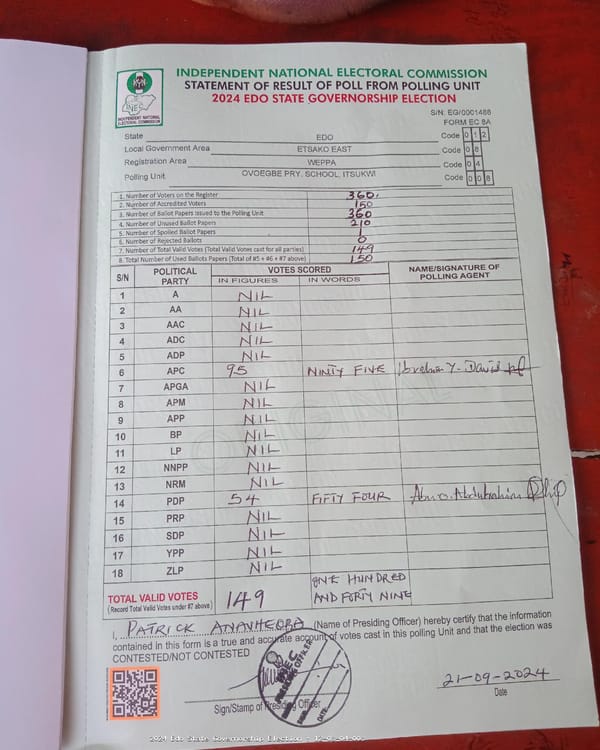 INDEPENDENT NATIONAL ELECTORAL COMMISSION
STATEMENT OF RESULT OF POLL FROM POLLING UNIT
2024 EDO STATE GOVERNORSHIP ELECTION
INEC
INDEPENDENT NATIONAL
ELECTORAL COMMISSION
S/N: EG/0001488
FORM EC 8A
State EDO Code 0 1 2
Local Government Area ETSAKO EAST Code 0 8
Registration Area WEPPA Code 0 4
Polling Unit OVOEGBE PRY. SCHOOL, ITSUKWI Code 0 0 8
1. Number of Voters on the Register 360
2. Number of Accredited Voters 150
3. Number of Ballot Papers issued to the Polling Unit 360
4. Number of Unused Ballot Papers 210
5. Number of Spoiled Ballot Papers 1
6. Number of Rejected Ballots 0
7. Number of Total Valid Votes (Total Valid Votes cast for all parties) 149
8. Total Number of Used Ballots Papers (Total of #5 + #6 + #7 above) 150
S/N POLITICAL PARTY VOTES SCORED NAME/SIGNATURE OF POLLING AGENT
IN FIGURES IN WORDS
1 A NIL
2 AA NIL
3 AAC NIL
4 ADC NIL
5 ADP NIL
6 APC 95 NINTY FIVE Ibrahim Y. David
7 APGA NIL
8 APM NIL
9 APP NIL
10 BP NIL
11 LP NIL
12 NNPP NIL
13 NRM NIL
14 PDP 54 FIFTY FOUR
15 PRP NIL
16 SDP NIL
17 YPP NIL
18 ZLP NIL
ORIGINAL
TOTAL VALID VOTES 149 ONE HUNDRED
(Record Total Valid Votes under #7 above) AND FORTY NINE
I, PATRICK (Name of Presiding Officer) hereby certify that the information
contained in this form is a true and accurate account of votes cast in this polling Unit and that the election was
CONTESTED/NOT CONTESTED
INEC
PRESIDING OFFICER
DATE
21-09-2024
Sign/Stamp of Presiding Officer
Date
2024 Edo State Governorship Election -